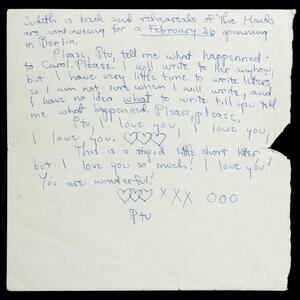 Judith is back and rehearsals of The Maids
are continueing for a February 26 openning
in Berlin.
Please, Ptu, tell me what happenned
to Carol. Please! I will write to her anyhow,
but I have very little time to write letters,
so I am not sure when I will write, and
I have no idea what to write till you tell
me what happenned. Please, please!
Ptu, I love you, I love you,
I love you, ♡♡♡
This is a stupid little short letter
but I love you so much! I love you!
You are wonderful!
♡♡♡ XXX OOO
Ptu